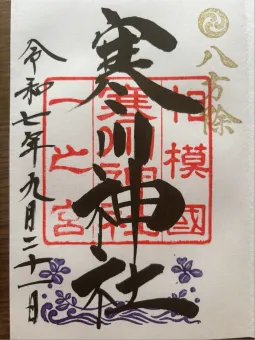 八方除
相模國
寒川神社
一之宮
寒川神社
令和七年九月二十一日